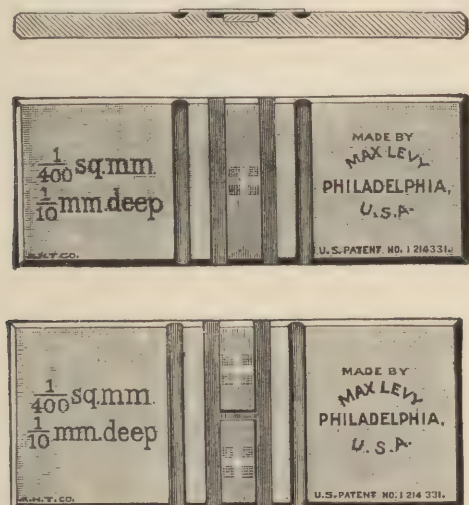 1/400 sq.mm.
1/10 mm.deep
A.H.T.CO.
MADE BY
MAX LEVY
PHILADELPHIA,
U.S.A.
U.S. PATENT NO. 1 214 331.
1/400 sq.mm.
1/10 mm.deep
A.H.T.CO.
MADE BY
MAX LEVY
PHILADELPHIA,
U.S.A.
U.S. PATENT NO. 1 214 331.